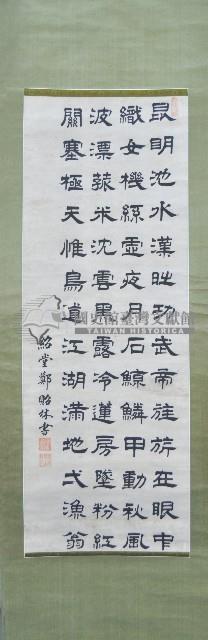 昆明池水漢時功武帝旌旂在眼中
織女機絲虛夜月石鯨鱗甲動秋風
波漂菰米沈雲黑露冷蓮房墜粉紅
關塞極天惟鳥道江湖滿地弌漁翁
紹堂鄭昭林書
國史館臺灣文獻館
TAIWAN HISTORICA